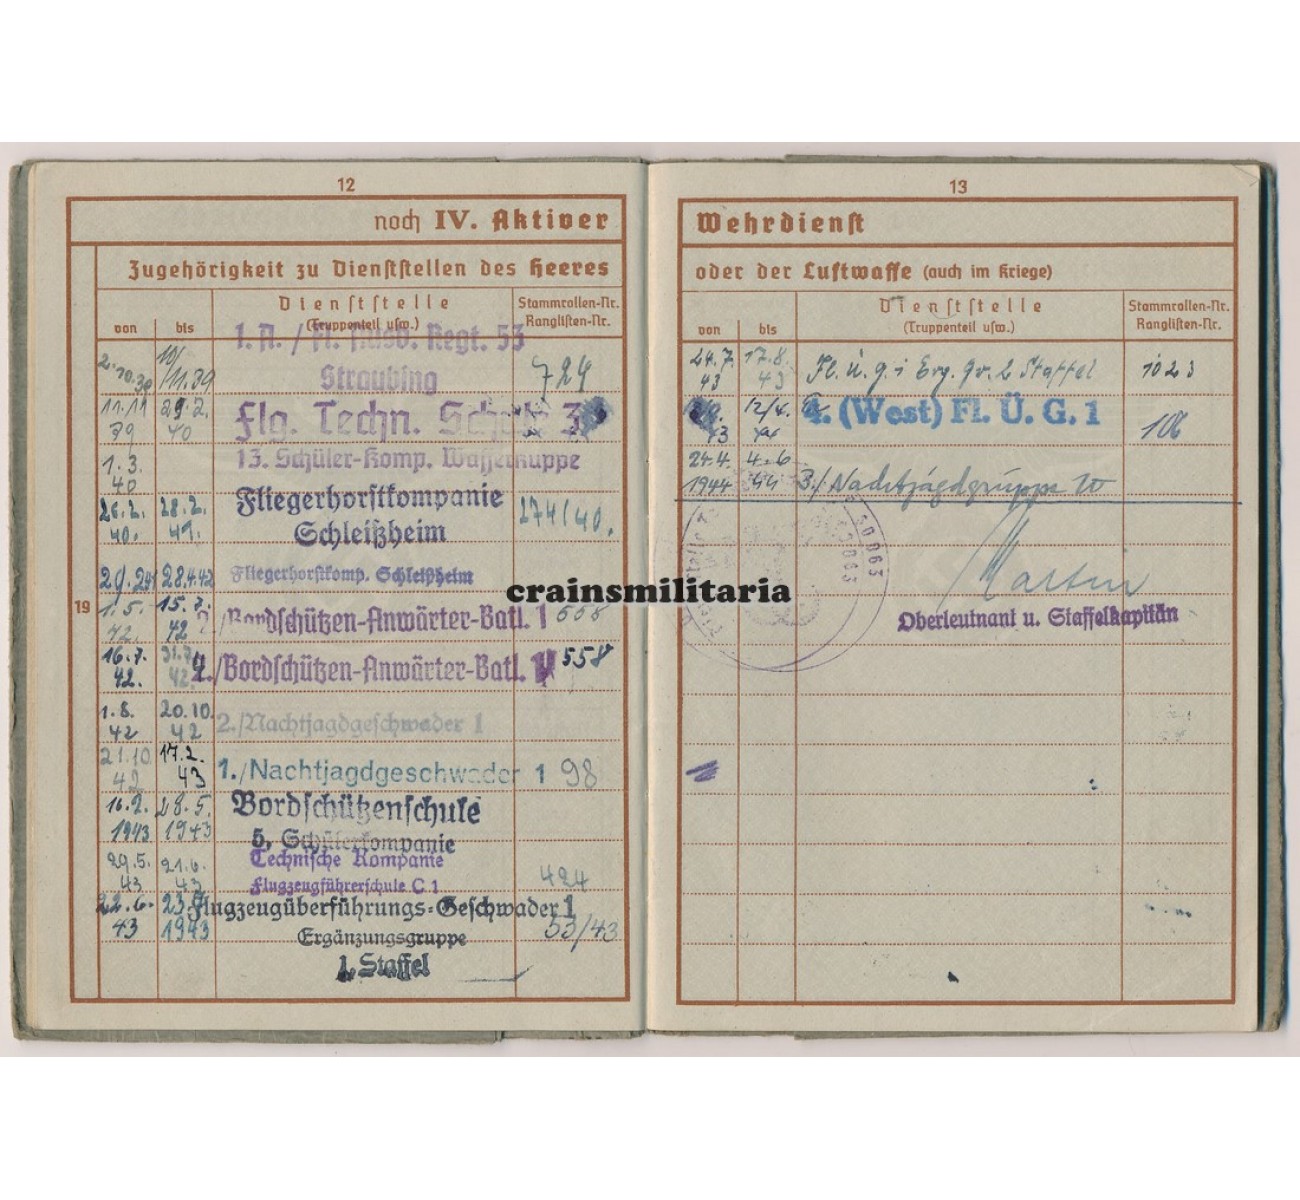 12
noch IV. Aktiver
Zugehörigkeit zu Dienststellen des Heeres
von
bis
Dienststelle
(Truppenteil usw.)
Stammrollen-Nr.
Ranglisten-Nr.
19
2.10.39
10/11.39
1. A. / Fl. Ausb. Regt. 53
Straubing
724
11.11
39
29.2.
40
Flg. Techn. Schule 3
1.3.
40
13. Schüler-Komp. Wasserkuppe
26.2.
40.
28.2.
41.
Fliegerhorstkompanie
Schleißheim
274/40.
28.4.42
Fliegerhorstkomp. Schleißheim
1.5.
42.
15.7.
42
2./Bordschützen-Anwärter-Batl. 1
558
16.7.
42.
31.7.
42.
4./Bordschützen-Anwärter-Batl.
558
1.8.
42
20.10.
42
2./Nachtjagdgeschwader 1
21.10.
42
17.2.
43
1./Nachtjagdgeschwader 1
98
16.2.
1943
28.5.
1943
Bordschützenschule
5. Schülerkompanie
29.5.
43
21.6.
43
Technische Kompanie
Flugzeugführerschule C 1
424
22.6.
43
1943
Flugzeugüberführungs-Geschwader 1
Ergänzungsgruppe
1. Staffel
53/43
13
Wehrdienst
oder der Luftwaffe (auch im Kriege)
von
bis
Dienststelle
(Truppenteil usw.)
Stammrollen-Nr.
Ranglisten-Nr.
24.7.
43
17.8.
43
Fl. Ü. G. 1 Erg. Gr. 2 Staffel
1023
43
12/4.
44
4. (West) Fl. Ü. G. 1
106
24.4.
1944
4.6
44
3./Nachtjagdgruppe 10
Martin
Oberleutnant u. Staffelkapitän
crainsmilitaria